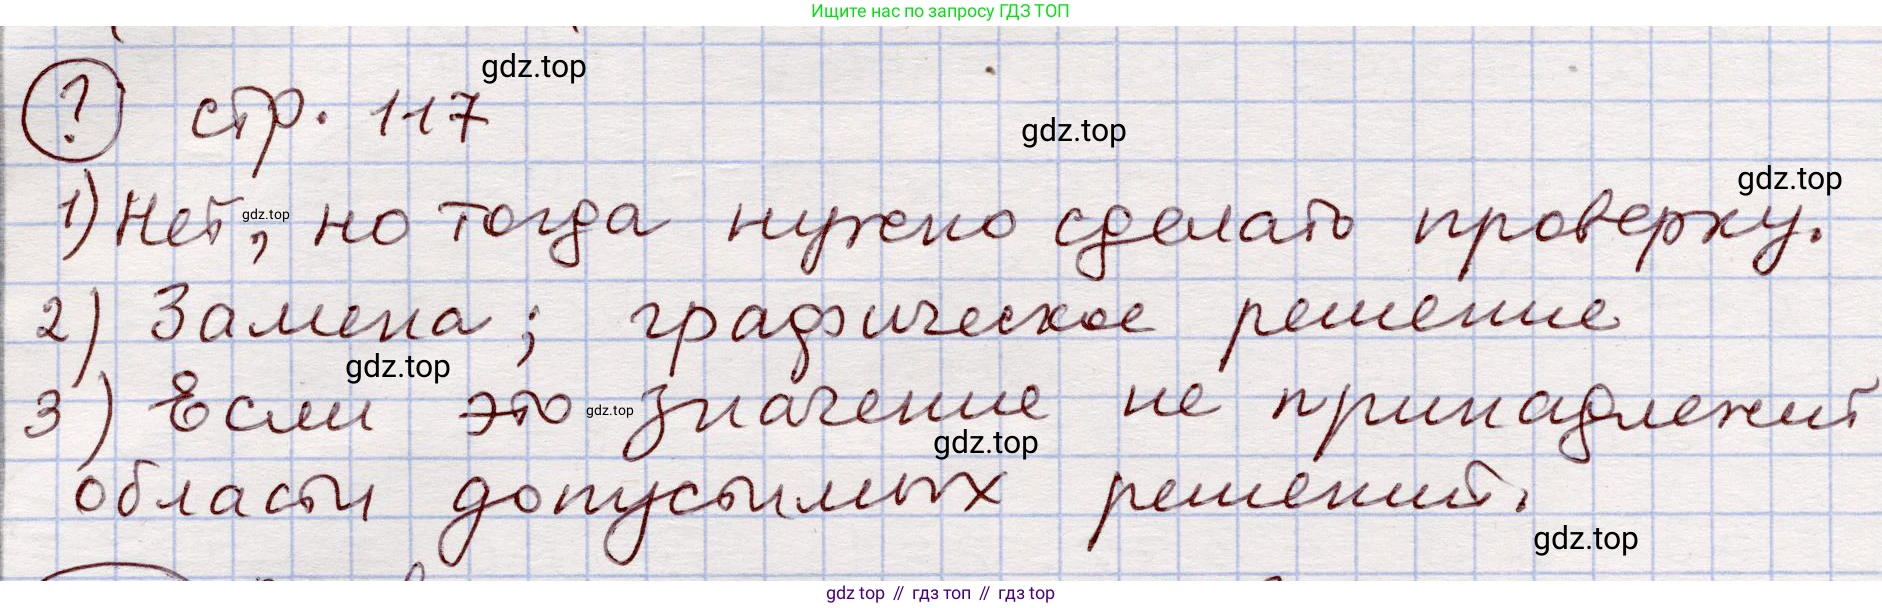 Ищите нас по запросу ГДЗ ТОП
gdz.top
? стр. 117
gdz.top
gdz.top
1) Нет, но тогда нужно сделать проверку.
gdz.top
2) Замена; графическое решение
gdz.top
3) Если это значение не принадлежит
gdz.top
gdz.top
области допустимых решений.
gdz.top
gdz top // гдз топ // гдз top